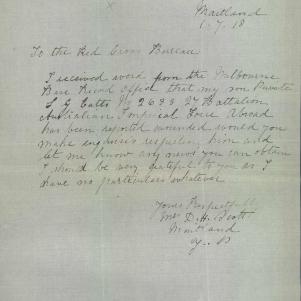 Maitland
To the Red Cross Bureau
I received word from the Melbourne
Base Record office that my son Private
No 2693 27 Battalion
Australian Imperial Force Abroad
has been reported wounded would you
make inquiries respecting him and
let me know any news you can obtain
I should be very grateful to you as I
have no particulars whatever
Yours Respectfully
Mrs D. H.
Maitland